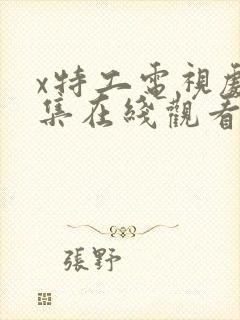 x特工電視劇
集在綫觀看
張野